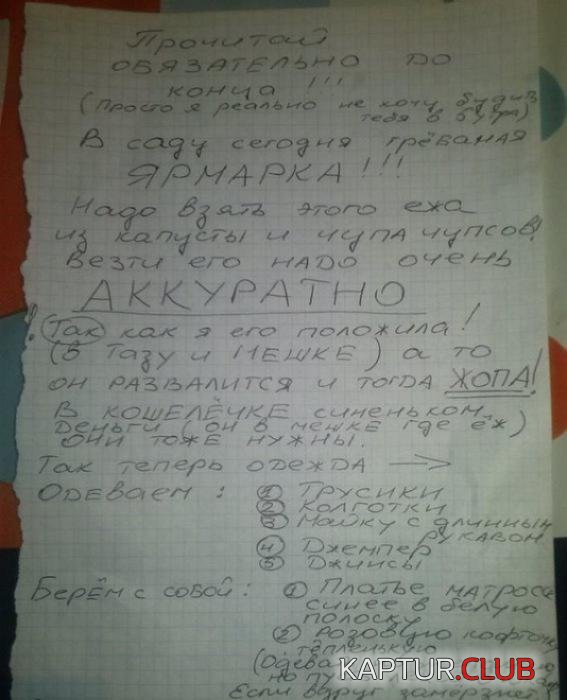 Прочитай
ОБЯЗАТЕЛЬНО ДО
конца !!!
(Просто я реально не хочу будить
тебя в 6 утра)
В саду сегодня грёбаная
ЯРМАРКА!!!
Надо взять этого ежа
из капусты и чупа чупсов!
Везти его надо очень
АККУРАТНО
! Так как я его положила!
(В Тазу и МЕШКЕ) а то
он РАЗВАЛИТСЯ и тогда ЖОПА!
В кошелёчке синеньком,
деньги (он в мешке где ёж)
они тоже нужны.
Так теперь одежда →
Одеваем: ① Трусики
② Колготки
③ Майку с длинным
рукавом
④ Джемпер
⑤ Джинсы
Берём с собой: ① Платье матроса
синее в белую
полоску
② розовую кофточку
тёпленькую
(Одева
но пу
Если вдруг замёрзнет
KAPTUR.CLUB